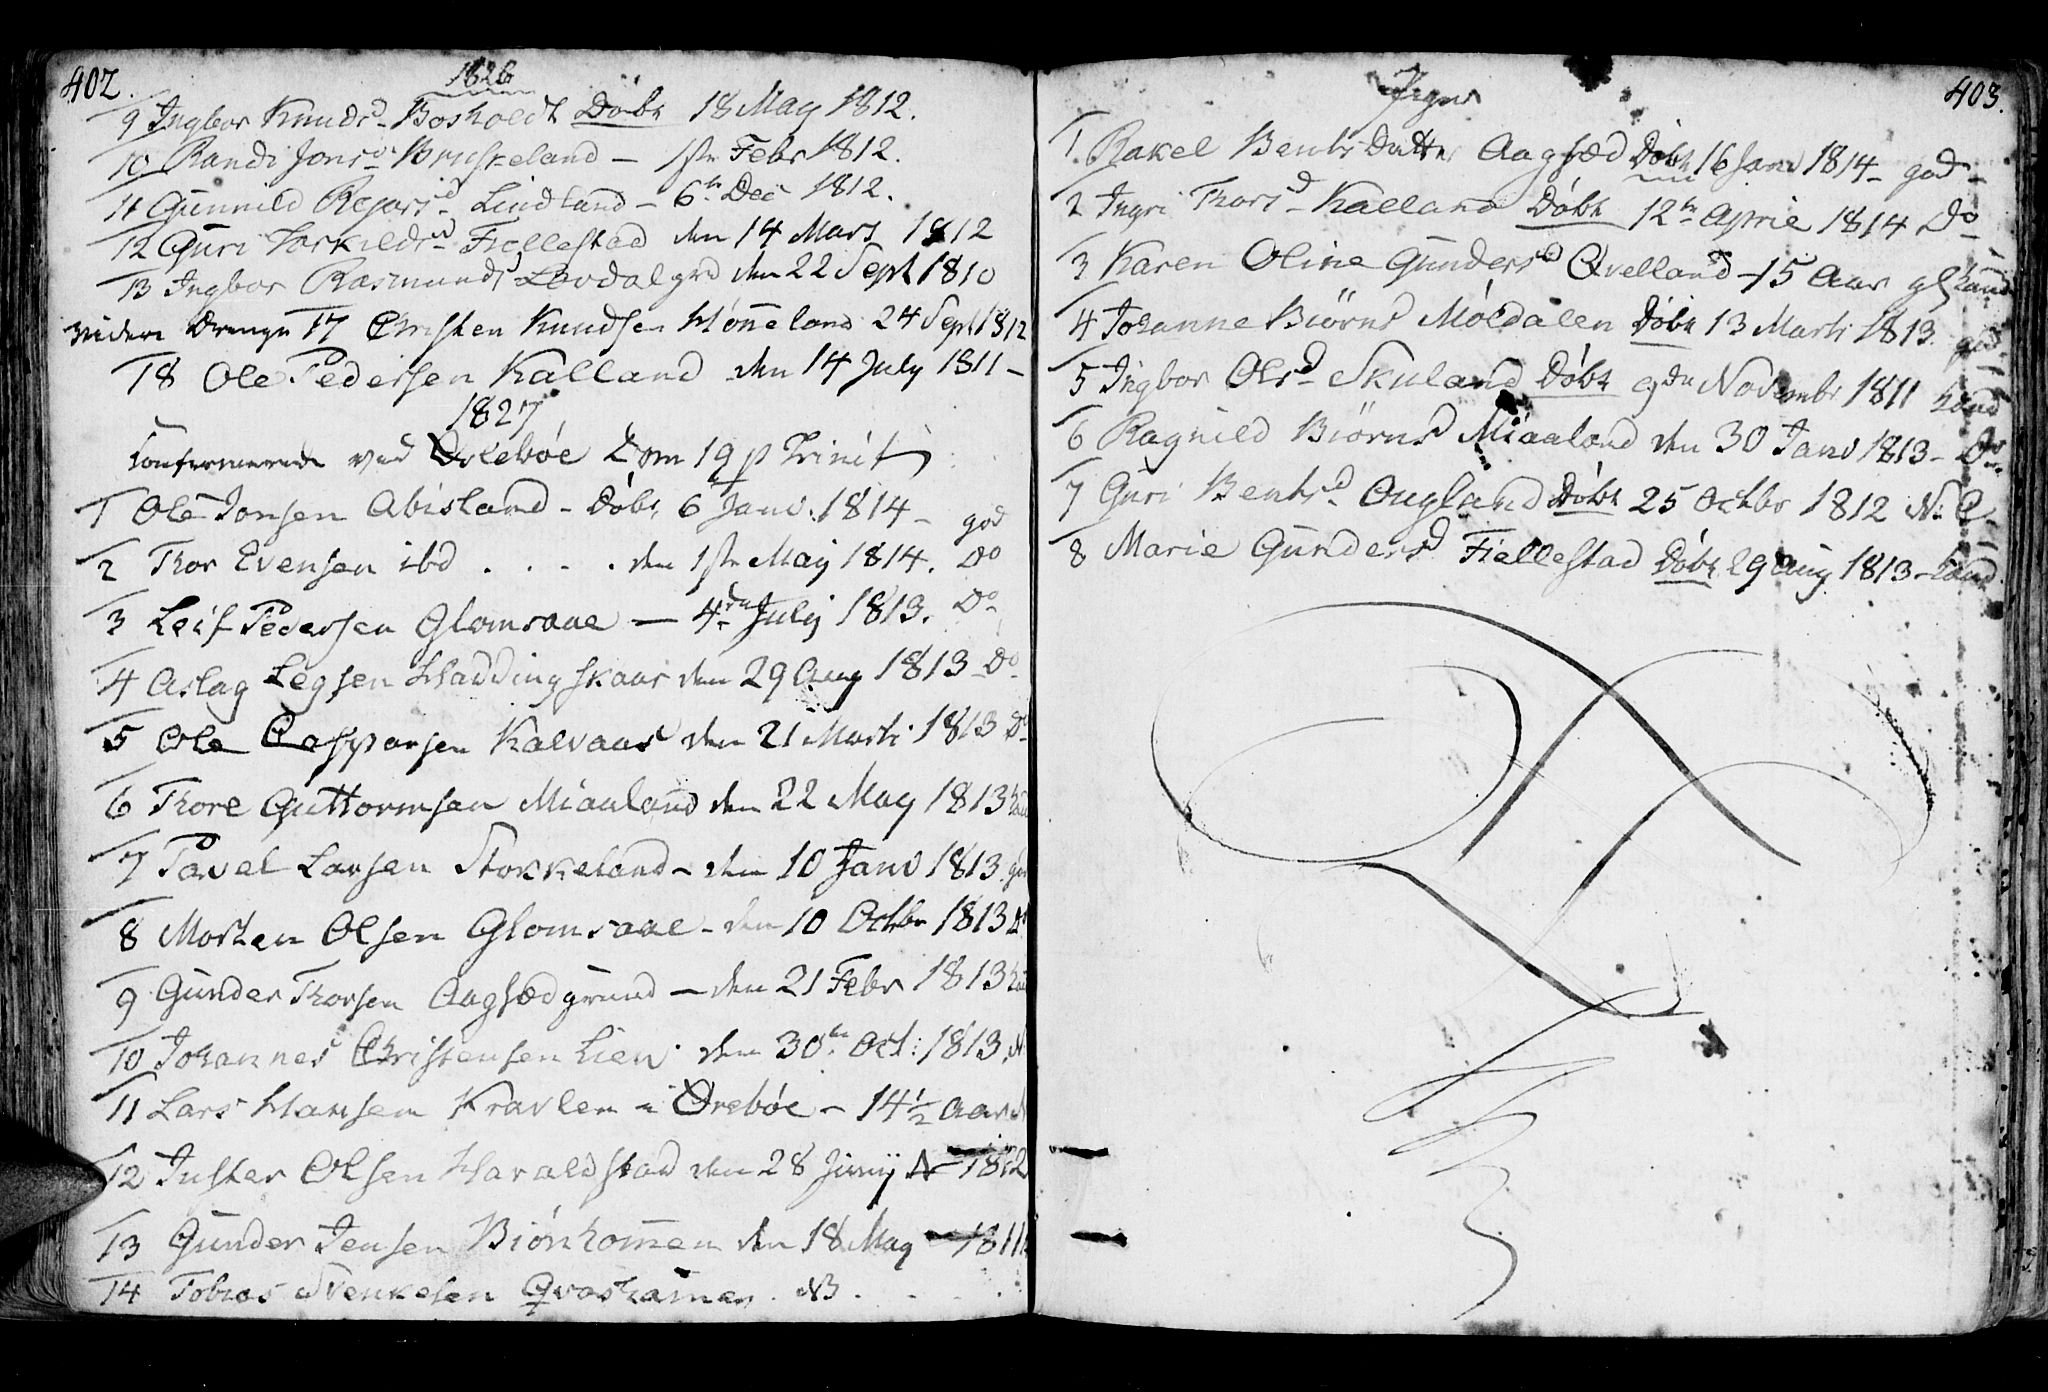 402.
1826
9 Ingbor Knudsd Bosholdt Døbt 18 May 1812.
10 Randi Jonsd Bruskeland – 1ste Febr 1812.
11 Gunnild Rejorsd Lindland – 6te Dec 1812.
12 Guri Torkildsd Fiellestad den 14 Mars 1812
13 Ingbor Rasmundsd Lovdal grd den 22 Sept 1810
videre Drenge 17 Christen Knudsen Hønneland 24 Sept 1812
18 Ole Pedersen Kalland den 14 July 1811 –
1827
Confermerede ved Ørebøe Dom 19 p Trinit
1 Ole Jonsen Abisland – Døbt 6te Janv. 1814 – god
2 Thor Evensen ibd . . . . den 1ste May 1814. Do
3 Leif Pedersen Glomsaae — 4de July 1813. Do
4 Aslag Legsen Haddingskaar den 29 Aug 1813 Do
5 Ole Caspersen Kalvaas den 21 Marti 1813 Do
6 Thore Guttormsen Miaaland den 22 May 1813
7 Pavel Larsen Stokkeland – den 10 Janv 1813.
8 Morten Olsen Glomsaae – den 10 Octbr 1813 Do
9 Gunder Thorsen Aagsæd grund – den 21 Febr 1813
10 Johannes Christensen Lien den 30te Oct: 1813. N
11 Lars Hansen Kravlen i Ørebøe – 14 1/2 Aar N
12 Juster Olsen Haraldstad den 28 Junij N 1812
13 Gunder Jensen Biønhommen den 18 May – 1811
14 Tobias Svenkesen Qvashammen . NB . . . .
403.
Piger
1. Rakel Bents Datter Aagsæd Døbt 16 Janv 1814 – god –
2 Ingri Thorsd Kalland Døbt 12te Aprie 1814 Do
3 Karen Oline Gundersd Qvelland – 15 Aar gl
4 Johanne Biørnsd Møldalen Døbt 13 Marti 1813. god
5 Ingbor Olsd Skuland Døbt 9de Novembr 1811
6 Ragnild Biørnsd Miaaland den 30 Janv 1813 – Do
7 Guri Bentsd Ougland Døbt 25 Octbr 1812
8 Marie Gundersd Fiellestad Døbt 29 Aug 1813